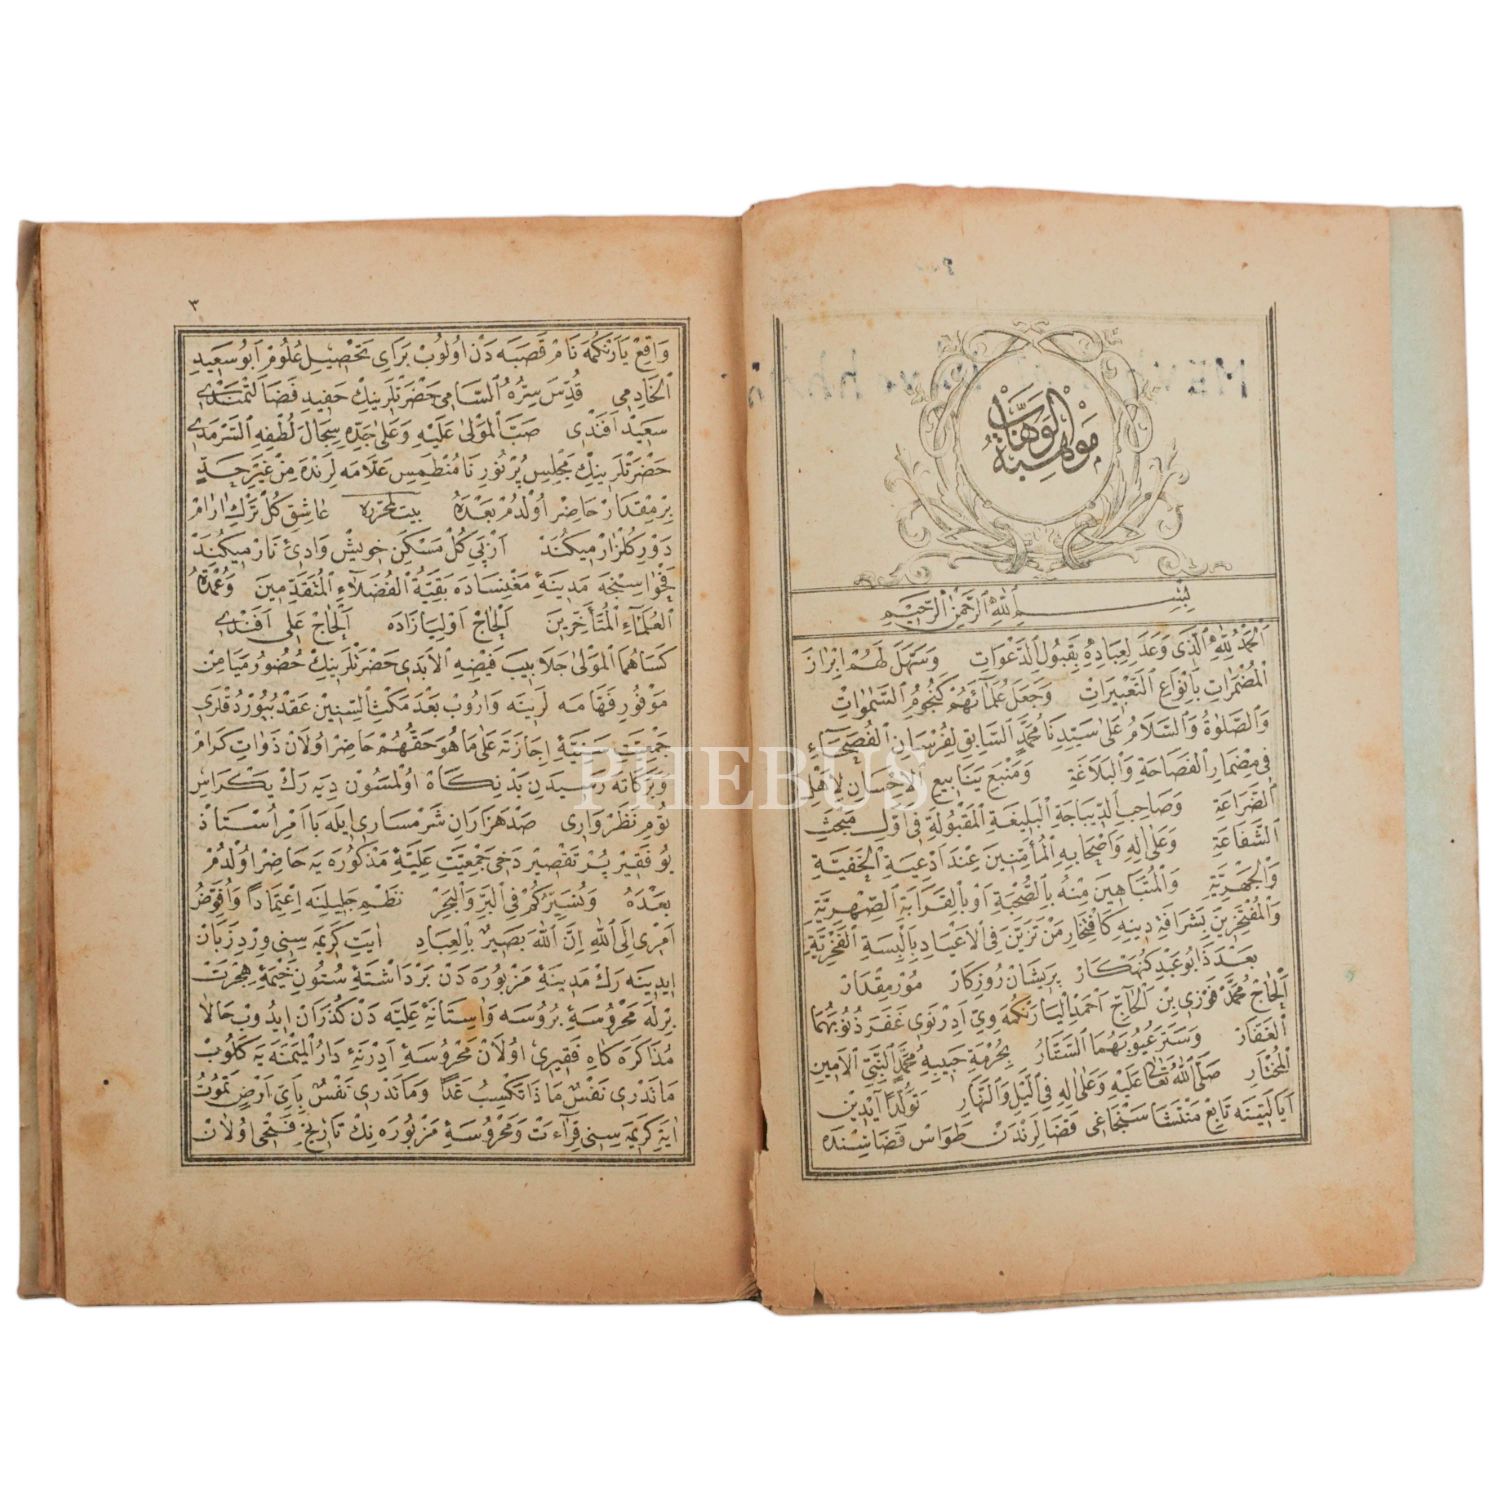 موهبة الوهاب
بِسْمِ ٱللّٰهِ ٱلرَّحْمٰنِ ٱلرَّحِيمِ
اَلْحَمْدُ لِلّٰهِ ٱلَّذِى وَعَدَ لِعِبَادِهِ بِقَبُولِ ٱلدَّعَوَاتِ وَسَهَّلَ لَهُمْ اِبْرَازَ
ٱلْمُضْمَرَاتِ بِاَنْوَاعِ ٱلتَّعْبِيرَاتِ وَجَعَلَ عُلَمَائَهُمْ كَنُجُومِ ٱلسَّمٰوَاتِ
وَٱلصَّلٰوةُ وَٱلسَّلَامُ عَلٰى سَيِّدِنَا مُحَمَّدٍ ٱلسَّابِقِ لِفُرْسَانِ ٱلْفُصَحَاءِ
فِى مِضْمَارِ ٱلْفَصَاحَةِ وَٱلْبَلَاغَةِ وَمَنْبَعِ يَنَابِيعِ ٱلْاِحْسَانِ لِاَهْلِ
ٱلضَّرَاعَةِ وَصَاحِبِ ٱلدِّيبَاجَةِ ٱلْبَلِيغَةِ ٱلْمَقْبُولَةِ فِى اَوَّلِ مَبْحَثِ
ٱلشَّفَاعَةِ وَعَلٰى اٰلِهِ وَاَصْحَابِهِ ٱلْمُأَمِّنِينَ عِنْدَ اَدْعِيَةِ ٱلْخَفِيَّةِ
وَٱلْجَهْرِيَّةِ وَٱلْمُتَبَاهِينَ مِنْهُ بِٱلصُّحْبَةِ اَوْ بِٱلْقَرَابَةِ ٱلصِّهْرِيَّةِ
وَٱلْمُفْتَخِرِينَ بِشَرَافَةِ دِينِهِ كَٱفْتِخَارِ مَنْ تَزَيَّنَ فِى ٱلْاَعْيَادِ بِاَلْبِسَةِ ٱلْفَخْرِيَّةِ
بَعْدَ ذَا بُو عَبْدِ كُنَهْكَارْ پَرِيشَانْ رُوزِكَارْ مُورْ مِقْدَارْ
اَلْحَاجْ مُحَمَّدْ فَوْزِى بِنْ اَلْحَاجّ اَحْمَدْ اَلْيَارَنْكُمَه وِىّ اَدِرْنَوِى غَفَرَ ذُنُوبَهُمَا
ٱلْغَفَّارْ وَسَتَرَ عُيُوبَهُمَا ٱلسَّتَّارْ بِحُرْمَةِ حَبِيبِهِ مُحَمَّدٍ ٱلنَّبِىِّ ٱلْاَمِينِ
ٱلْمُخْتَارِ صَلَّى ٱللّٰهُ تَعَالٰى عَلَيْهِ وَعَلٰى اٰلِهِ فِى ٱلَّيْلِ وَٱلنَّهَارِ تَوَلُّدًا اَيْدِينْ
اَيَالَتِينَه تَابِعْ مَنْتَشَا سَنْجَاغِى قَضَالَرِنْدَنْ طَوَاسْ قَضَاسِنْدَه
٣
وَاقِعْ يَارَنْكُمَه نَامْ قَصَبَه دَنْ اُولُوبْ بَرَاىِ تَحْصِيلِ عُلُومْ اَبُو سَعِيدِ
ٱلْخَادِمِى قُدِّسَ سِرُّهُ ٱلسَّامِى حَضْرَتْلَرِينِكْ حَفِيدِ فَضَائِلْمَنْدِى
سَعِيدْ اَفَنْدِى صَبَّ ٱلْمَوْلٰى عَلَيْهِ وَعَلٰى جَدِّهِ سِجَالَ لُطْفِهِ ٱلسَّرْمَدِى
حَضْرَتْلَرِينِكْ مَجْلِسِ پُرْنُورِ نَا مُنْطَمِسِ عَلَّامَه لَرِنْدَه مِنْ غَيْرِ حَدٍّ
بِرْ مِقْدَارْ حَاضِرْ اُولْدُمْ بَعْدَهُ بيت لمحرره عَاشِقِ كُلْ تَرْكِ اٰرَامْ
دَرْ كُلْزَارْ مِيكُنَدْ اَزْ پَىِ كُلْ مَسْكَنِ خُويشْ وَادِئِ نَارْ مِيكُنَدْ
فَحْوَاسِنْجَه مَدِينَۀِ مَغْنِيسَادَه بَقِيَّةُ ٱلْفُضَلَاءِ ٱلْمُتَقَدِّمِينَ وَعُمْدَةُ
ٱلْعُلَمَاءِ ٱلْمُتَأَخِّرِينَ اَلْحَاجْ اَوْلِيَازَادَه اَلْحَاجْ عَلِى اَفَنْدِى
كَسَاهُمَا ٱلْمَوْلٰى جَلَابِيبَ فَيْضِهِ ٱلْاَبَدِى حَضْرَتْلَرِينِكْ حُضُورِ مَيَامِنْ
مَوْفُورِ فَهَّامَه لَرِينَه وَارُوبْ بَعْدَ مَكْثِ ٱلسِّنِينْ عَقْدْ بُيُورْدُقْلَرِى
جَمْعِيَّتِ سَنِيَّۀِ اِجَازَتَه عَلٰى مَا هُوَ حَقُّهُمْ حَاضِرْ اُولَانْ ذَوَاتِ كِرَامْ
وَبَرَكَاتَه رَسِيدَنْ بَدْ نِكَاهْ اُولْمَسُونْ دِيَه رَكْ يَكْرَاسِ
ثُومْ نَظَرْ وَارِى صَدْ هَزَارَانِ شَرْمَسَارِى اِيلَه بَا اَمْرِ اُسْتَاذْ
بُو فَقِيرِ پُرْ تَقْصِيرْ دَخِى جَمْعِيَّتِ عَلِيَّۀِ مَذْكُورَه يَه حَاضِرْ اُولْدُمْ
بَعْدَهُ وَيُسَيِّرُكُمْ فِى ٱلْبَرِّ وَٱلْبَحْرِ نَظْمِ جَلِيلِنَه اِعْتِمَادًا وَاُفَوِّضُ
اَمْرِى اِلَى ٱللّٰهِ اِنَّ ٱللّٰهَ بَصِيرٌ بِٱلْعِبَادِ اٰيَتِ كَرِيمَه سِنِى وِرْدِ زَبَانْ
اِيدِينَه رَكْ مَدِينَۀِ مَزْبُورَه دَنْ بَرْدَاشْتَۀِ سُتُونِ خَيْمَۀِ هِجْرَتْ
بِرْلَه مَحْرُوسَۀِ بُرُوسَه وَاٰسِتَانَۀِ عَلِيَّه دَنْ كُذَرَانْ اِيدُوبْ حَالَا
مُذَاكَرَه كَاهِ فَقِيرِى اُولَانْ مَحْرُوسَۀِ اَدِرْنَۀِ دَارُ ٱلْمَيْمَنَه يَه كَلُوبْ
مَا تَدْرِى نَفْسٌ مَا ذَا تَكْسِبُ غَدًا وَمَا تَدْرِى نَفْسٌ بِاَىِّ اَرْضٍ تَمُوتُ
اٰيَۀِ كَرِيمَه سِنِى قِرَاءَتْ وَمَحْرُوسَۀِ مَزْبُورَه نِكْ تَارِيخِ فَتْحِى اُولَانْ
PHEBUS